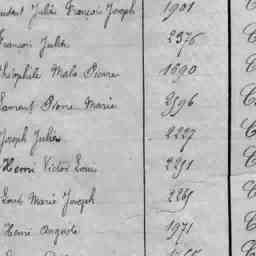 Julien François Joseph 1901 C
François Julien 2376 C
Théophile Malo Pierre 1690 C
Laurent Pierre Marie 2596 C
Joseph Julien 2227 C
Henri Victor Louis 2291 C
Louis Marie Joseph 2265 C
Henri Auguste 1971 C